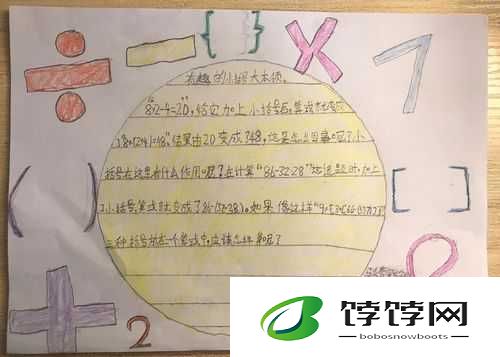 ÷ − { } × 7
有趣的小括号大本领。
给它加上小括号后,算式就变成
结果由20变成48,这是怎么回事呢?小
括号在这里有什么作用呢?在计算“86-32-28”这道题时,加上
了小括号,算式就变成了86-(32-28)。如果像这样
三种括号在一个算式中,应该怎样算呢?
( ) [ ]
+ 2 8
饽饽网
bobosnowboots.com